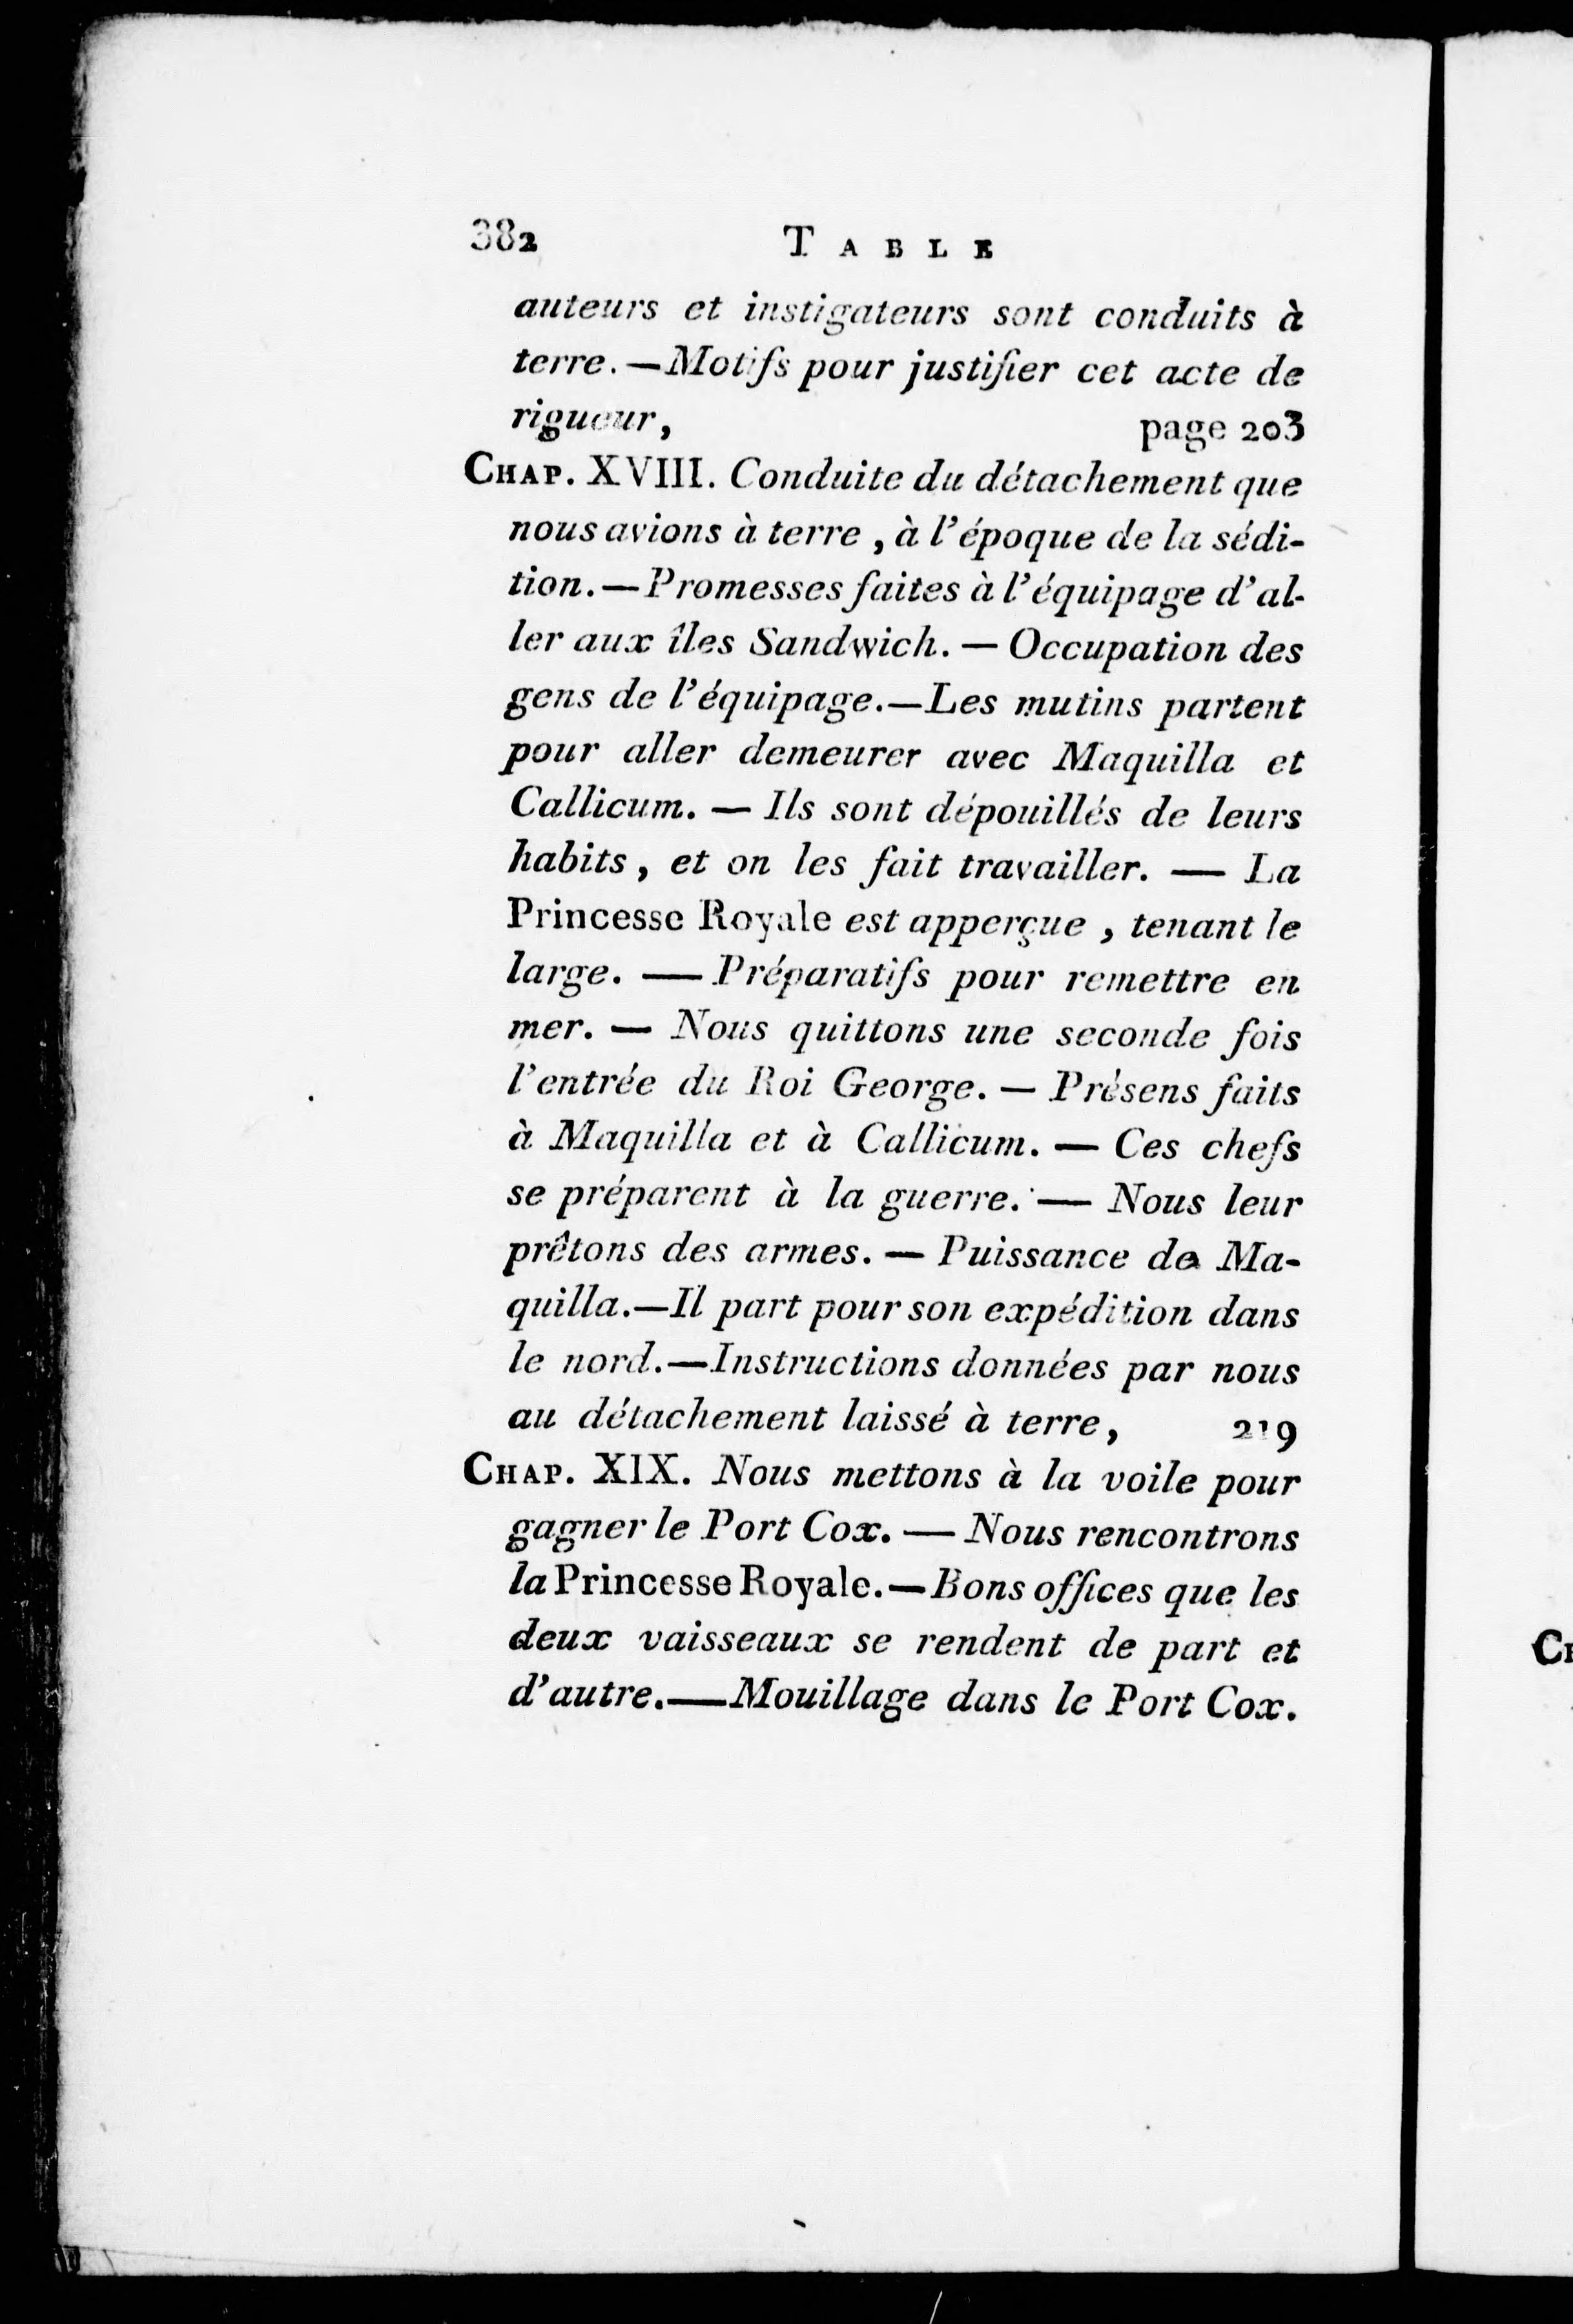 382 TABLE
auteurs et instigateurs sont conduits à
terre. — Motifs pour justifier cet acte de
rigueur, page 203
CHAP. XVIII. Conduite du détachement que
nous avions à terre , à l'époque de la sédi-
tion. — Promesses faites à l'équipage d'al-
ler aux îles Sandwich. — Occupation des
gens de l'équipage. — Les mutins partent
pour aller demeurer avec Maquilla et
Callicum. — Ils sont dépouillés de leurs
habits , et on les fait travailler. — La
Princesse Royale est apperçue , tenant le
large. — Préparatifs pour remettre en
mer. — Nous quittons une seconde fois
l'entrée du Roi George. — Présens faits
à Maquilla et à Callicum. — Ces chefs
se préparent à la guerre. — Nous leur
prêtons des armes. — Puissance de Ma-
quilla. — Il part pour son expédition dans
le nord. — Instructions données par nous
au détachement laissé à terre, 219
CHAP. XIX. Nous mettons à la voile pour
gagner le Port Cox. — Nous rencontrons
la Princesse Royale. — Bons offices que les
deux vaisseaux se rendent de part et
d'autre. — Mouillage dans le Port Cox.